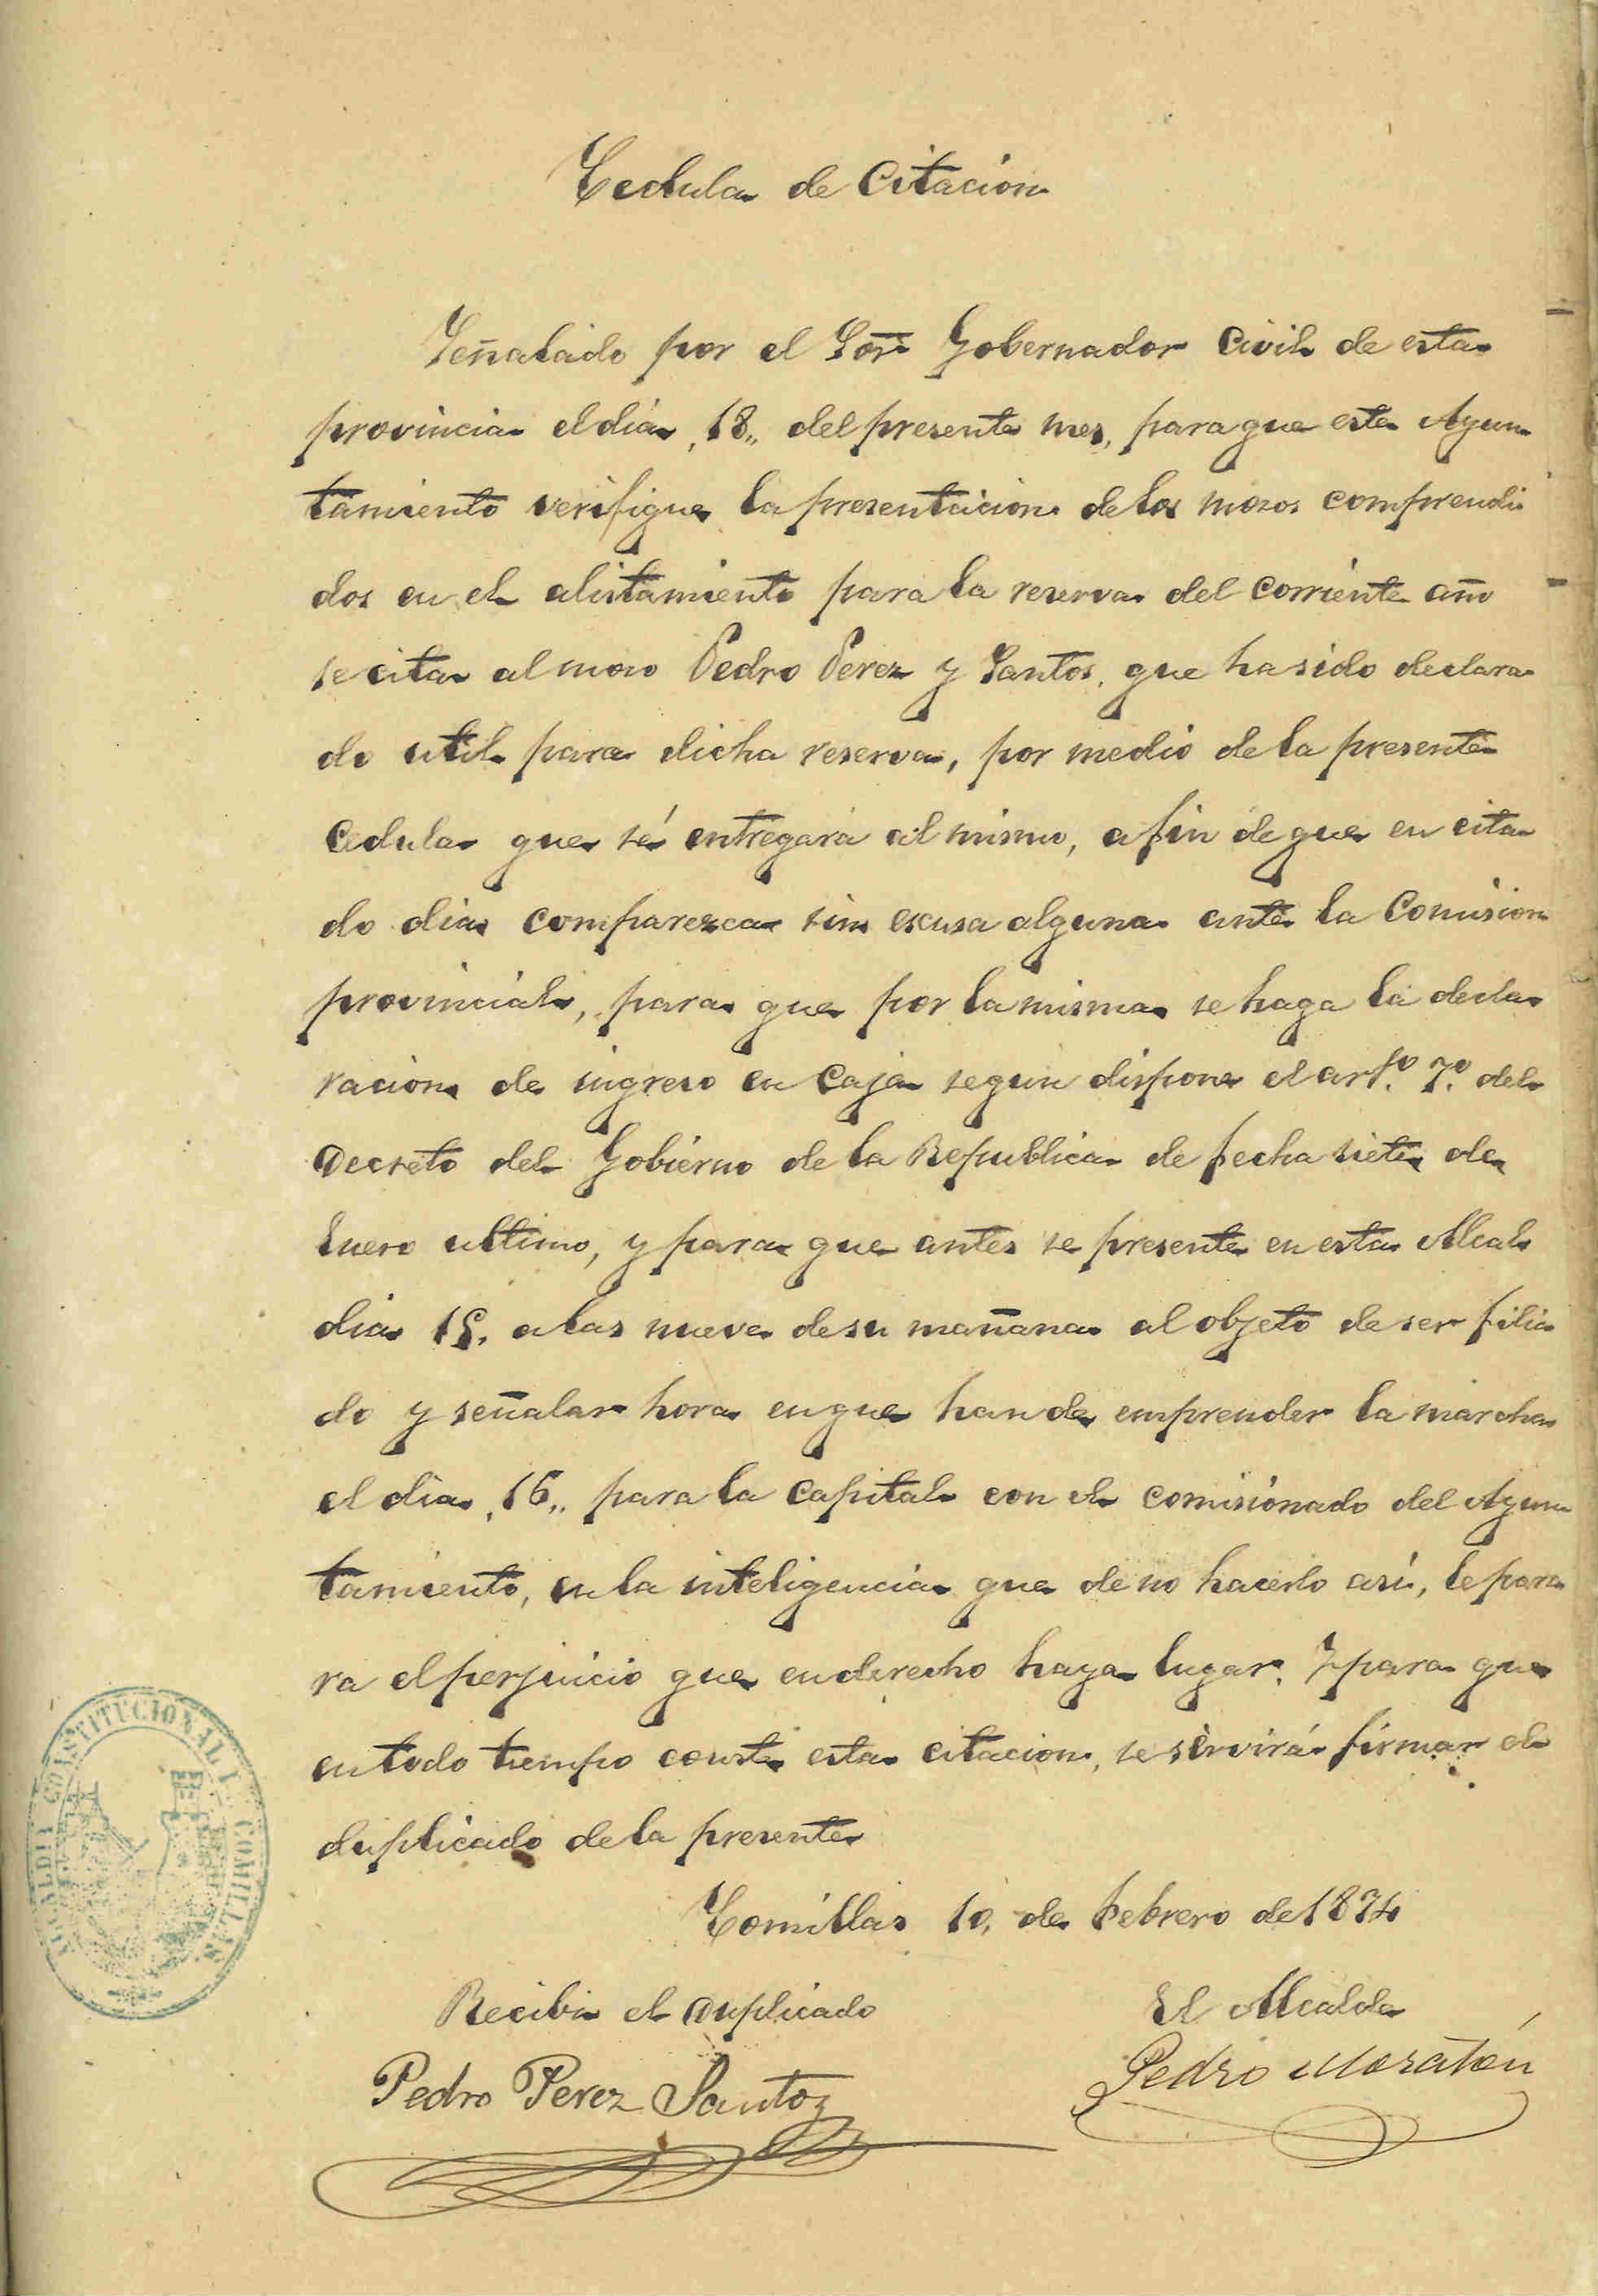 Cedula de Citacion
Señalado por el Sor. Gobernador Civil de esta
provincia el dia, 18,, del presente mes, para que este Ayun
tamiento verifique la presentacion de los mozos comprendi
dos en el alistamiento para la reserva del corriente año
se cita al mozo Pedro Perez y Santos, que ha sido declara
do util para dicha reserva, por medio de la presente
Cedula que sé entregará al mismo, a fin de que en cita
do dia comparezca sin escusa alguna ante la Comision
provincial, para que por la misma se haga la decla
racion de ingreso en Caja segun dispone el artº. 7º. del
Decreto del Gobierno de la Republica de fecha siete de
Enero ultimo, y para que antes se presente en esta Alcal
dia 15, a las nueve de su mañana al objeto de ser filia
do y señalar hora en que han de emprender la marcha
el dia, 16,, para la Capital con el comisionado del Ayun
tamiento, en la inteligencia que de no hacerlo asi, le para
ra el perjuicio que en derecho haya lugar. Y para que
en todo tiempo conste esta citacion, se servirá firmar el
duplicado de la presente
Comillas 10, de Febrero de 1874
Recibi el Duplicado
El Alcalde
Pedro Perez Santos
Pedro Moratón
ALCALDIA CONSTITUCIONAL COMILLAS